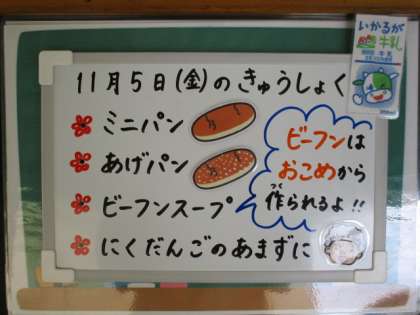 いかるが
牛乳
11月5日(金)のきゅうしょく
ミニパン
あげパン
ビーフンスープ
にくだんごのあまずに
ビーフンは
おこめから
作られるよ!!
つく